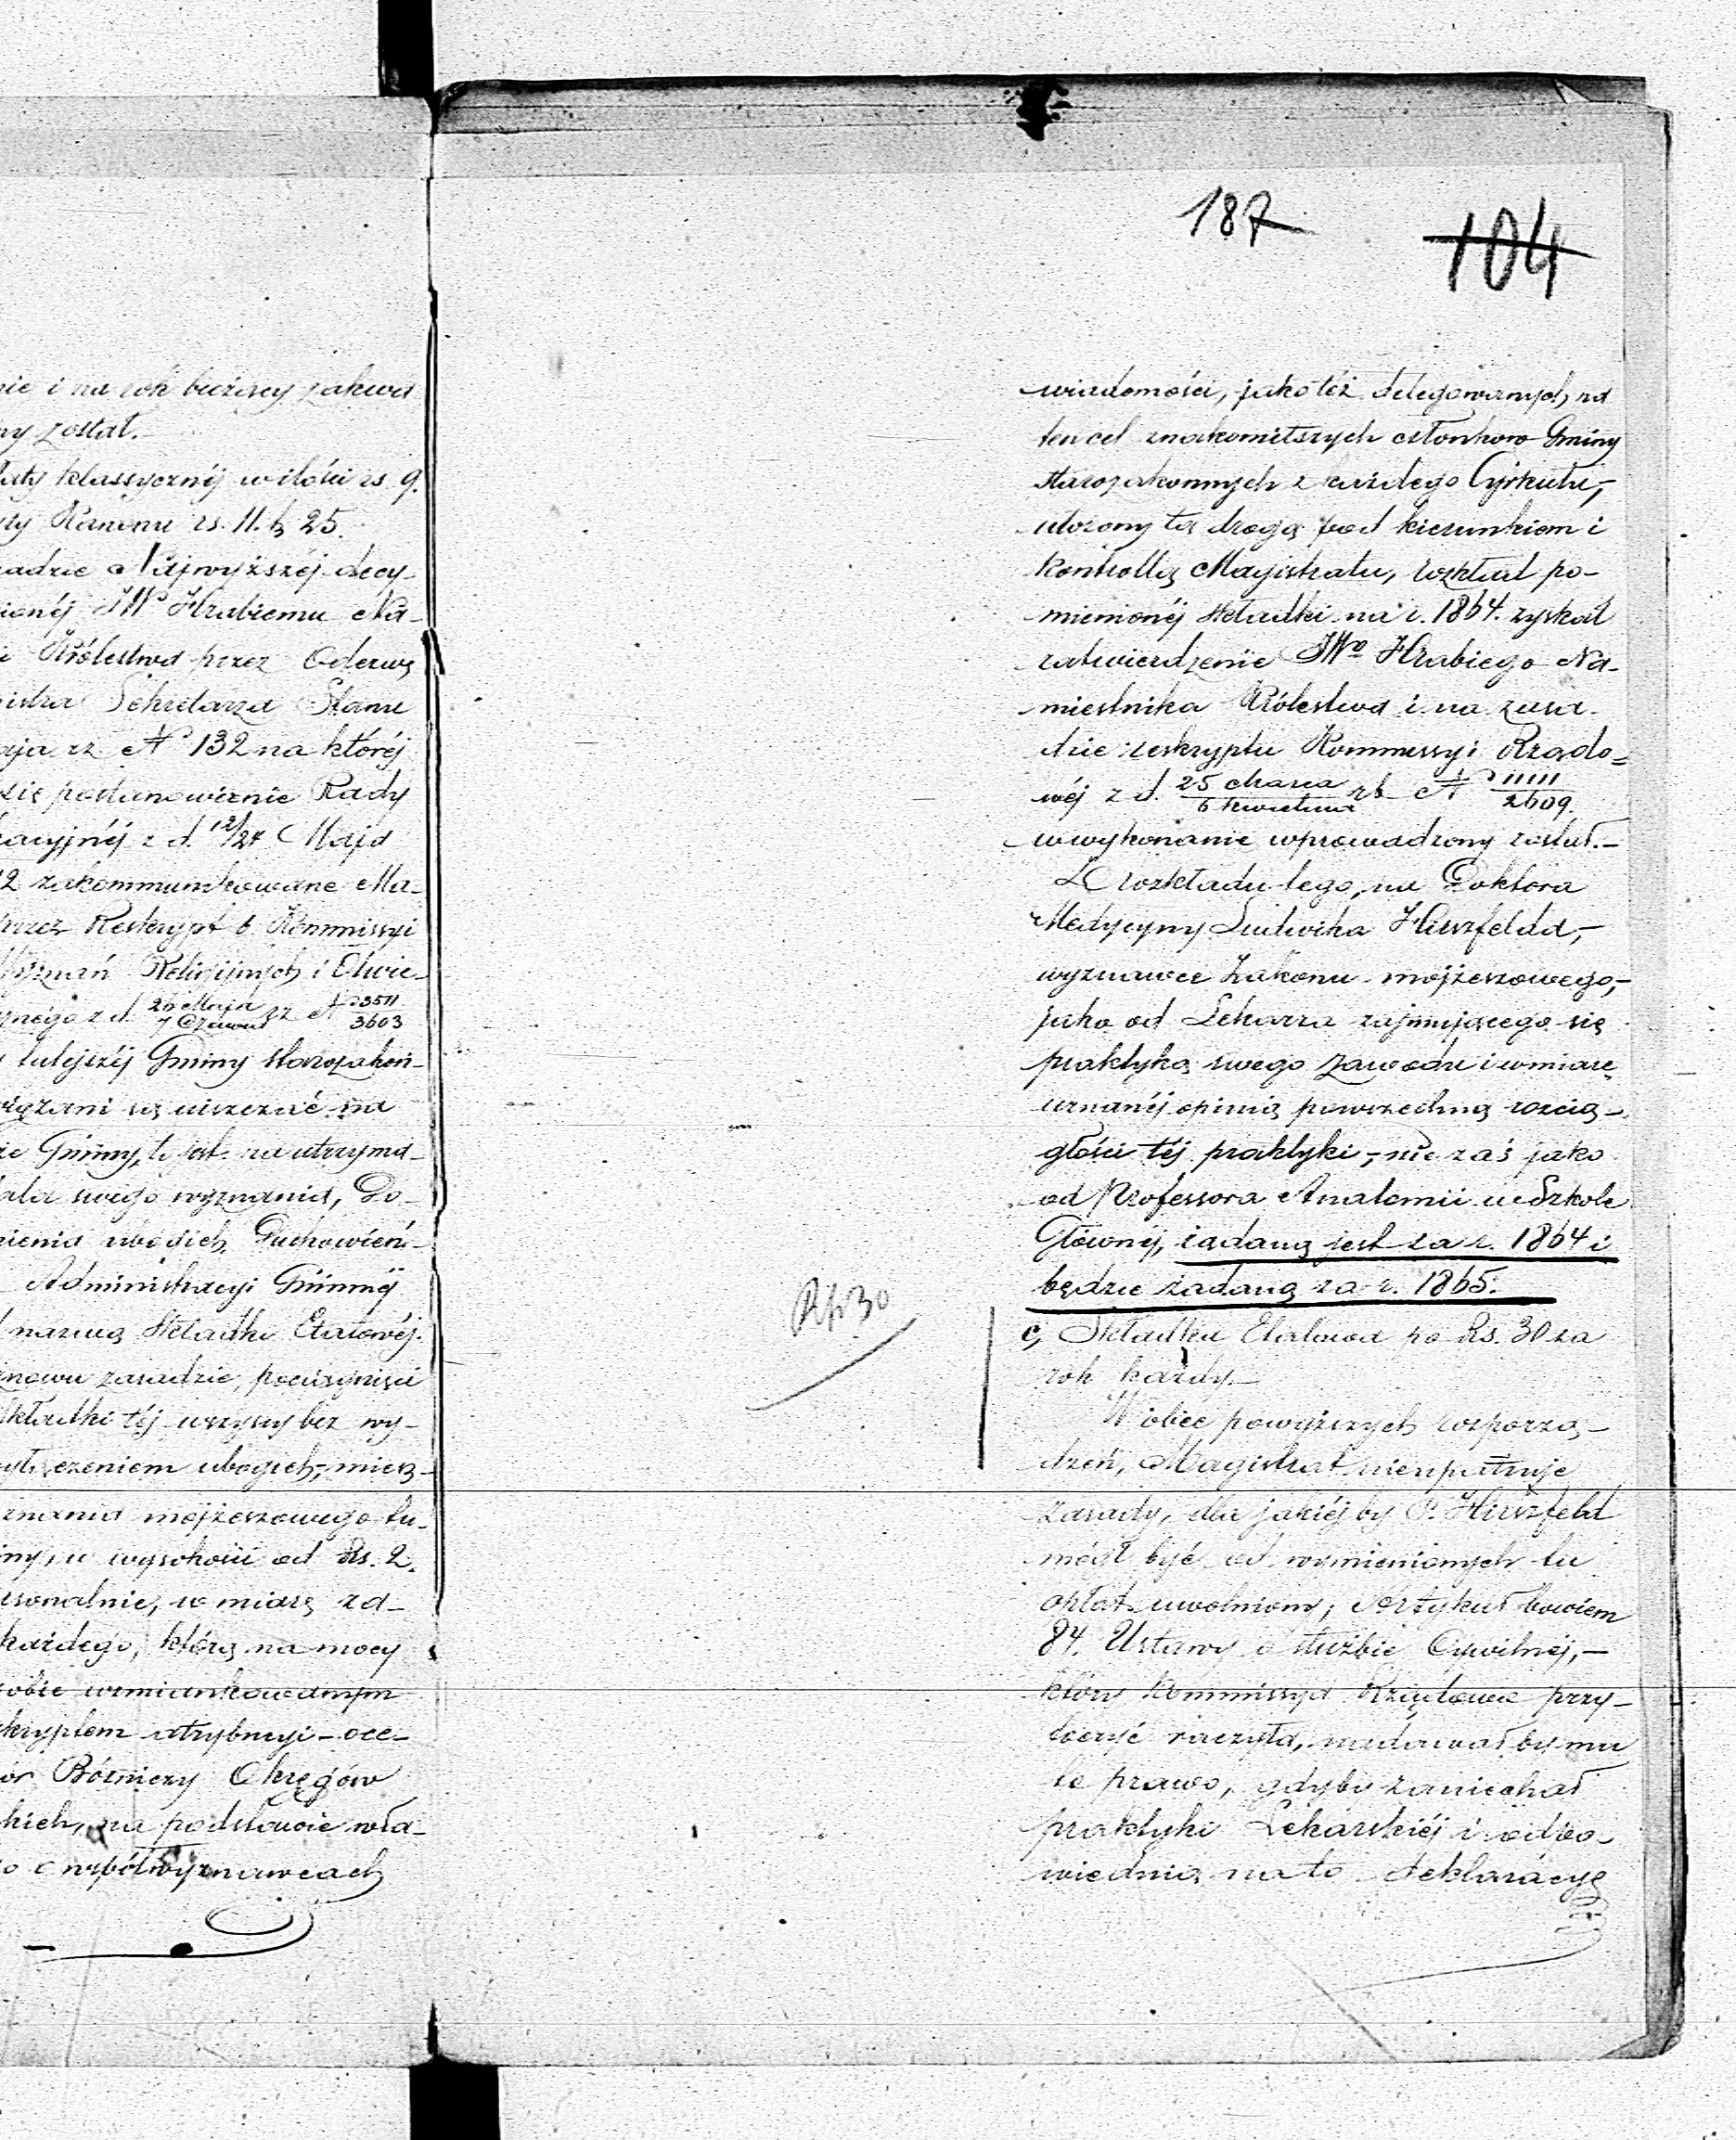 nie i na rok bieżący zakwa
ny został.
łaty klassycznéj w ilości rs 9.
ty Kanonu rs. 11. k 25.
sadzie Najwyższéj decy-
ionéj JWo Hrabiemu Na-
i Królestwa przez Oderwę
istra Sekretarza Stanu
aja rz. No 132 na któréj
zie postanowienie Rady
kacyjnéj z d. 12/24 Maja
2 zakommunikowane Ma-
przez Reskrypt b. Kommissyi
Wyznań Religijnych i Oświe-
znego z d. 26 Maja / 7 Czerwca rz No 3511 / 3603
tutejszéj Gminy Starozakon-
iązani są uiszczać na
ie Gminy, to jest na utrzyma-
ala swego wyznania, Do-
nienia ubogich, Duchowień-
Administracyi Gminnéj
nazwą Składki Etatowéj.
nowu zasadzie, pociągnięci
kładki téj wszyscy bez wy-
wyłączeniem ubogich, miesz-
znania mojżeszowego tu-
iny, w wysokości od Rs. 2.
rsonalnie, w miarę za-
każdego, którą na mocy
sobie wzmiankowanym
skryptem atrybucyi- oce-
or Bóżniczy Okręgów
kich, na podstawie wła-
o o współwyznawcach
187
104
wiadomości, jako téż delegowanych, na
ten cel znakomitszych członków Gminy
Starozakonnych z każdego Cyrkułu,-
ułożony tą drogą pod kierunkiem i
kontrollą Magistratu, rozkład po-
mienionéj składki na r. 1864. zyskał
zatwierdzenie JWo Hrabiego Na-
miestnika Królestwa i na zasa-
dzie reskryptu Kommissyi Rządo=
wéj z d. 25 Marca / 6 Kwietnia rb No 11111 / 2609.
w wykonanie wprowadzony został.-
Z rozkładu tego, na Doktora
Medycyny Ludwika Hirszfelda,-
wyznawce Zakonu mojżeszowego,-
jako od Lekarza zajmującego się
praktyką swego zawodu i w miarę
uznanéj opinią powszechną rozcią-
głości téj praktyki,- nie zaś jako
od Professora Anatomii w Szkole
Głównéj, żądaną jest za r. 1864 i
będzie żądaną za r. 1865.
Rs 30
c, Składka Etatowa po Rs. 30 za
rok każdy.-
W obec powyższych rozporzą-
dzeń, Magistrat nieupatruje
zasady, dla jakiéj by P. Hirszfeld
mógł być od wymienionych tu
opłat uwolniony; Artykuł bowiem
84. Ustawy o służbie Cywilnéj,-
który Kommissya Rządowa przy-
toczyć raczyła, nadawał by mu
to prawo, gdyby zaniechał
praktyki Lekarskiéj i odpo-
wiednią na to deklaracyę